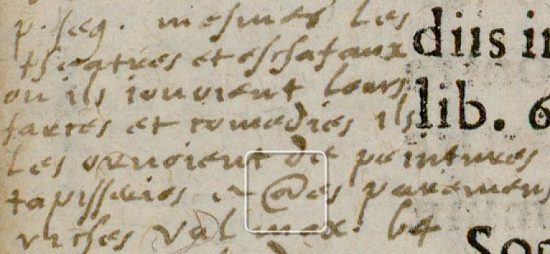 p. seq. mesmes les
theatres et eschafaux
ou ils iouoient leurs
farces et comedies ils
les ornoient de peintures
tapisseries et @es paremens
riches Val max. b4
diis
lib. 6